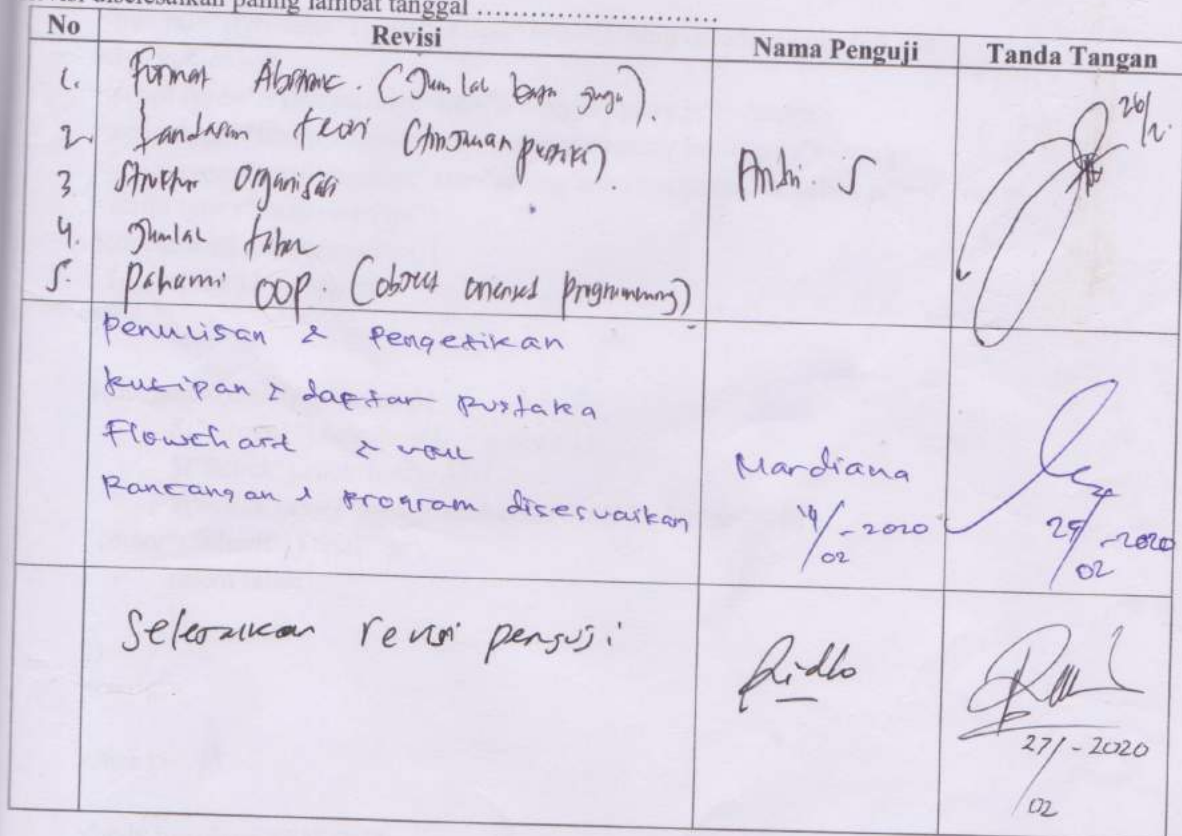 diselesaikan paling lambat tanggal ..............................
No Revisi Nama Penguji Tanda Tangan
1. Format Abstrac. (Jumlah
2. Landasan teori (tinjauan pustaka).
3 Struktur Organisasi
4. Jumlah
5. Pahami OOP. (object oriented programming)
Andri S
26/2.
Penulisan & Pengetikan
kutipan & daftar pustaka
Flowchart &
Rancangan & program disesuaikan
Mardiana
14/02-2020
29/02-2020
Selesaikan revisi penguji
Ridho
27/02-2020